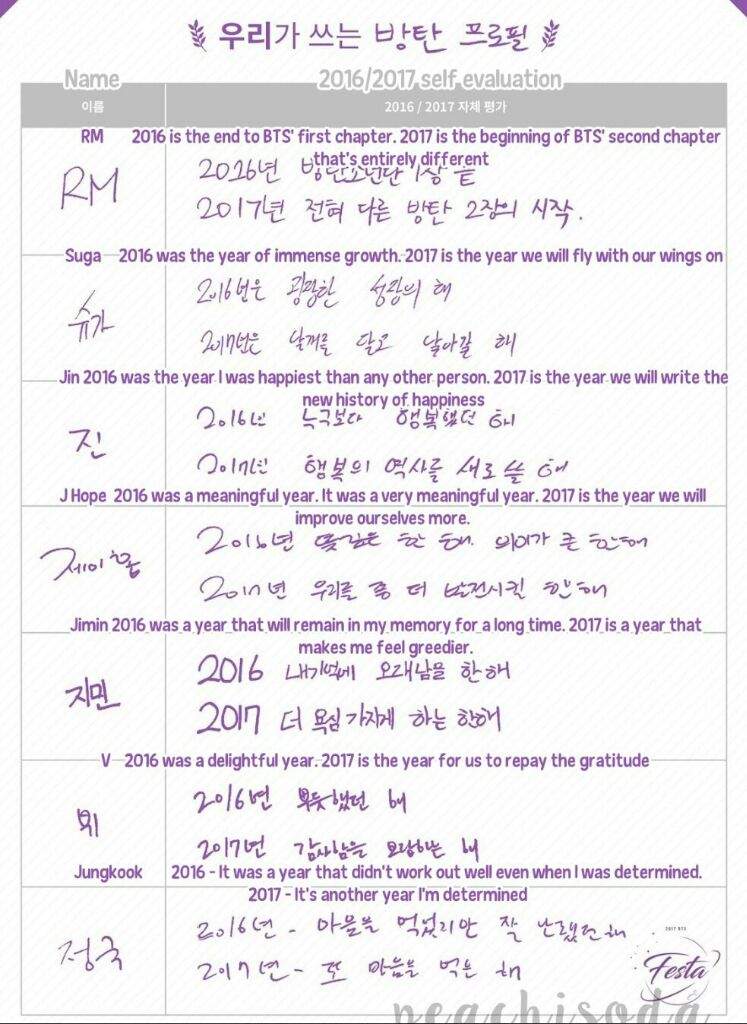 우리가 쓰는 방탄 프로필
Name 2016/2017 self evaluation
이름 2016 / 2017 자체 평가
RM 2016 is the end to BTS' first chapter. 2017 is the beginning of BTS' second chapter
that's entirely different
RM
2016년 방탄소년단 1장 끝
2017년 전혀 다른 방탄 2장의 시작.
Suga 2016 was the year of immense growth. 2017 is the year we will fly with our wings on
슈가
2016년은 굉장한 성장의 해
2017년은 날개를 달고 날아갈 해
Jin 2016 was the year I was happiest than any other person. 2017 is the year we will write the
new history of happiness
진
2016년 누구보다 행복했던 해
2017년 행복의 역사를 새로 쓸 해
J Hope 2016 was a meaningful year. It was a very meaningful year. 2017 is the year we will
improve ourselves more.
제이홉
2016년 뜻깊은 한 해. 의미가 큰 한해
2017년 우리를 좀 더 발전시킬 한해
Jimin 2016 was a year that will remain in my memory for a long time. 2017 is a year that
makes me feel greedier.
지민
2016 내기억에 오래남을 한해
2017 더 욕심 가지게 하는 한해
V 2016 was a delightful year. 2017 is the year for us to repay the gratitude
뷔
2016년 뿌듯했던 해
2017년 감사함을 보답하는 해
Jungkook 2016 - It was a year that didn't work out well even when I was determined.
2017 - It's another year I'm determined
정국
2016년 - 마음을 먹었지만 잘 안됐던 해
2017년 - 또 마음을 먹은 해
2017 BTS
Festa
peachisoda